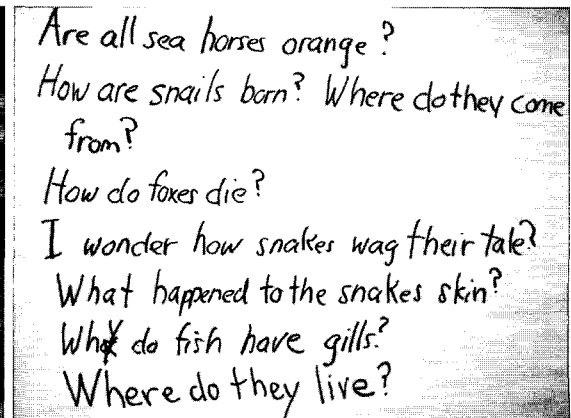 Are all sea horses orange?
How are snails born? Where do they come
from?
How do foxes die?
I wonder how snakes wag their tale?
What happened to the snakes skin?
Why do fish have gills?
Where do they live?